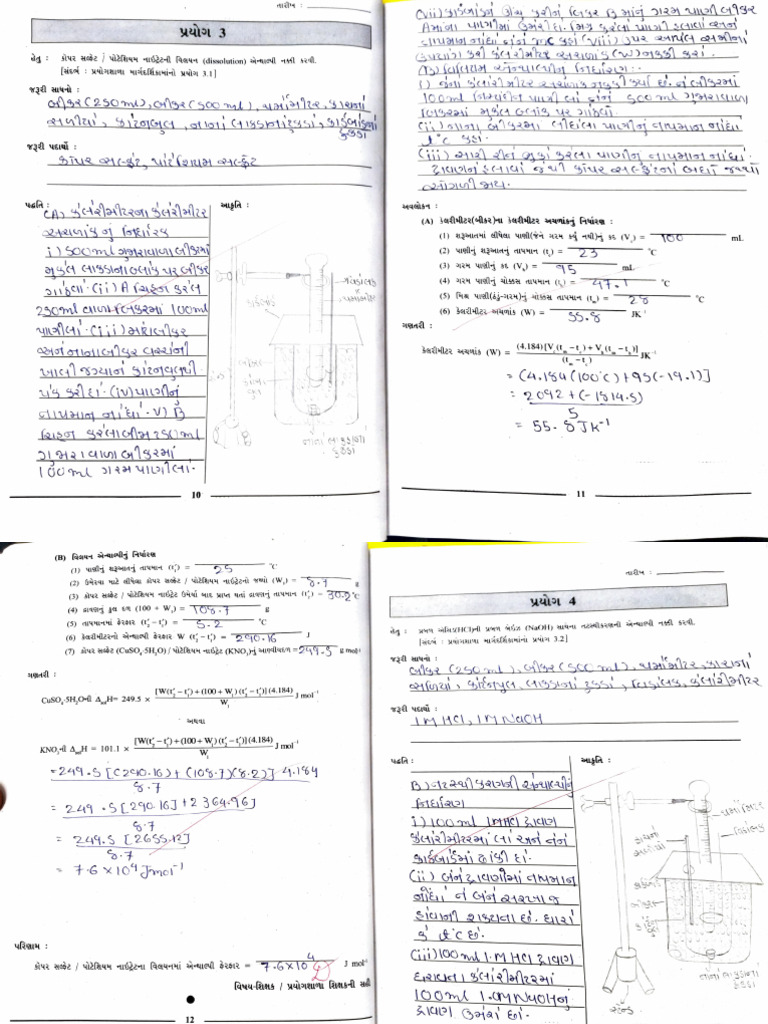 તારીખ :
પ્રયોગ 3
હેતુ : કોપર સલ્ફેટ / પોટેશિયમ નાઈટ્રેટની વિલયન (dissolution) એન્થાલ્પી નક્કી કરવી.
[સંદર્ભ : પ્રયોગશાળા માર્ગદર્શિકામાંનો પ્રયોગ 3.1]
જરૂરી સાધનો :
બીકર (250ml), બીકર (500ml), થર્મોમીટર, કાચના
સળીયા, કોટનવુલ, નાના લાકડાના ટુકડા, કાર્ડબોર્ડના
ટુકડા
જરૂરી પદાર્થો :
કોપર સલ્ફેટ, પોટેશિયમ સલ્ફેટ
પદ્ધતિ :
આકૃતિ :
(A) કેલરીમીટરના કેલરીમીટર
અચળાંકનું નિર્ધારણ
i) 500ml ગુજરાવાળા બીકરમાં
મુકેલ લાકડાના બ્લોક પર બીકર
ગોઠવો (ii) A ચિહન કરેલ
250ml વાળા બિકરમાં 100ml
પાણી લો. (iii) મોટા બીકર
અને નાના બીકર વચ્ચેની
ખાલી જગ્યાને કોટનવુલથી
પેક કરી દો. (iv) પાણીનું
તાપમાન નોંધો. v) B
ચિહન કરેલા બીજા 250ml
ગુજરાવાળા બીકરમાં
100ml ગરમ પાણી લો.
કાર્ડબોર્ડ
નાના લાકડાનો
ટુકડો
10
(vii) કાર્ડબોર્ડને ઊંચુ કરીને બિકર B માંનું ગરમ પાણી બીકર
Aમાંના પાણીમાં ઉમેરી દો. મિશ્ર કરેલા પાણીને હલાવો અને
તાપમાન નોંધો
(B) વિલયન એન્થાલ્પીનું નિર્ધારણ:
100ml નિસ્યંદિત પાણી લો તેને 500ml ગુજરાવાળા
બિકરમાં મુકેલ બ્લોક પર ગોઠવો.
(ii) નાના બીકરમાં લીધેલા પાણીનું તાપમાન નોંધો
t'₁°C કહો
અવલોકન :
(A) કેલરીમીટર(બીકર)ના કેલરીમીટર અચળાંકનું નિર્ધારણ :
(1) શરૂઆતમાં લીધેલા પાણી(જેને ગરમ કર્યું નથી)નું કદ (V₁) = 100 mL
(2) પાણીનું શરૂઆતનું તાપમાન (t₁) = 23 °C
(3) ગરમ પાણીનું કદ (V₂) = 95 mL
(4) ગરમ પાણીનું ચોક્કસ તાપમાન (t₂) = 47.1 °C
(5) મિશ્ર પાણી(ઠંડું-ગરમ)નું ચોક્કસ તાપમાન (tₘ) = 28 °C
(6) કેલરીમીટર અચળાંક (W) = 55.8 JK⁻¹
ગણતરી :
કેલરીમીટર અચળાંક (W) = (4.184) [V₁(tₘ–t₁) + V₂(tₘ–t₂)] / (tₘ–t₁) JK⁻¹
= (4.184 (100°C) + 95(-19.1)]
= 2092 + (-1814.5) / 5
= 55.8 JK⁻¹
11
(B) વિલયન એન્થાલ્પીનું નિર્ધારણ
(1) પાણીનું શરૂઆતનું તાપમાન (t'₁) = 25 °C
(2) ઉમેરવા માટે લીધેલા કોપર સલ્ફેટ / પોટેશિયમ નાઈટ્રેટનો જથ્થો (W₁) = 8.7 g
(3) કોપર સલ્ફેટ / પોટેશિયમ નાઈટ્રેટ ઉમેર્યા બાદ પ્રાપ્ત થતાં દ્રાવણનું તાપમાન (t'₂) = 30.2 °C
(4) દ્રાવણનું કુલ દળ (100 + W₁) = 108.7 g
(5) તાપમાનમાં ફેરફાર (t'₂–t'₁) = 5.2 °C
(6) કેલરીમીટરનો એન્થાલ્પી ફેરફાર W (t'₂–t'₁) = 290.16 J
(7) કોપર સલ્ફેટ (CuSO₄·5H₂O) / પોટેશિયમ નાઈટ્રેટ (KNO₃)નું આણ્વીયદળ = 249.5 g mol⁻¹
ગણતરી :
CuSO₄·5H₂Oની ΔₛₒₗH = 249.5 × [W(t'₂–t'₁)+(100+W₁)(t'₂–t'₁)](4.184) / W₁ J mol⁻¹
અથવા
KNO₃ની ΔₛₒₗH = 101.1 × [W(t'₂–t'₁)+(100+W₁)(t'₂–t'₁)](4.184) / W₁ J mol⁻¹
= 249.5 [(290.16) + (108.7)(5.2)] 4.184 / 8.7
= 249.5 [290.16] + 2364.96] / 8.7
= 249.5 [2655.12] / 8.7
= 7.6×10⁴ J mol⁻¹
પરિણામ :
કોપર સલ્ફેટ / પોટેશિયમ નાઈટ્રેટના વિલયનમાં એન્થાલ્પી ફેરફાર = 7.6×10⁴ J mol⁻¹
વિષય-શિક્ષક / પ્રયોગશાળા શિક્ષકની સહી
12
તારીખ :
પ્રયોગ 4
હેતુ : પ્રબળ ઍસિડ(HCl)ની પ્રબળ બેઈઝ (NaOH) સાથેના તટસ્થીકરણની એન્થાલ્પી નક્કી કરવી.
[સંદર્ભ : પ્રયોગશાળા માર્ગદર્શિકામાંનો પ્રયોગ 3.2]
જરૂરી સાધનો :
બીકર (250ml), બીકર (500ml), થર્મોમીટર, કાચના
સળિયા, કોટનવુલ, લાકડાના ટુકડા, વિડોલક, કેલરીમીટર
જરૂરી પદાર્થો :
1M HCl, 1M NaOH
પદ્ધતિ :
આકૃતિ :
B) તટસ્થીકરણની એન્થાલ્પીનું
નિર્ધારણ
i) 100ml 1M HCl દ્રાવણ
કેલરીમીટરમાં લો અને તેને
કાર્ડબોર્ડમાં ઢાંકી દો.
(ii) બંને દ્રાવણોમાં તાપમાન
નોંધો તે બંને સરખા જ
હોવાની શક્યતા છે. ધારો
કે t₁°C છે.
(iii) 100ml 1.M HCl દ્રાવણ
ધરાવતા કેલરીમીટરમાં
100ml 1.0M NaOHનું
દ્રાવણ ઉમેરો છો.
થર્મોમીટર
વિડોલક
નાનો લાકડાનો
ટુકડો
સ્ટેન્ડ